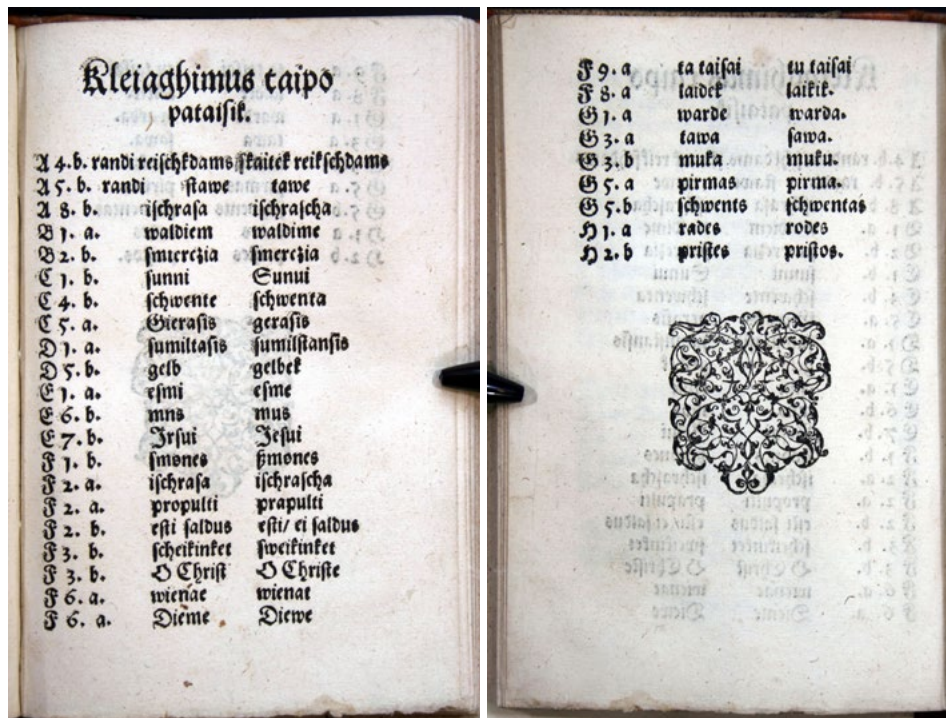 Kleiaghimus taipo
pataisik.
A 4. b. randi reischkdams skaitek reikschdams
A 5. b. randi stawe tawe
A 8. b. ischrasa ischrascha
B 1. a. waldiem waldime
B 2. b. smereżia smereżia
C 1. b. sunni Sunui
C 4. b. schwente schwenta
C 5. a. Gierasis gerasis
D 1. a. sumiltasis sumilstansis
D 5. b. gelb gelbek
E 1. a. esmi esme
E 6. b. mns mus
E 7. b. Jrsui Jesui
F 1. b. smones ßmones
F 2. a. ischrasa ischrascha
F 2. a. propulti prapulti
F 2. b. esti saldus esti/ ei saldus
F 3. b. scheikinket sweikinket
F 3. b. O Christ O Christe
F 6. a. wienae wienat
F 6. a. Dieme Diewe
F 9. a ta taisai tu taisai
F 8. a laidek laikik.
G 1. a warde warda.
G 3. a tawa sawa.
G 3. b muka muku.
G 5. a pirmas pirma.
G 5. b schwents schwentas
H 1. a rades rodes
H 2. b pristes pristos.